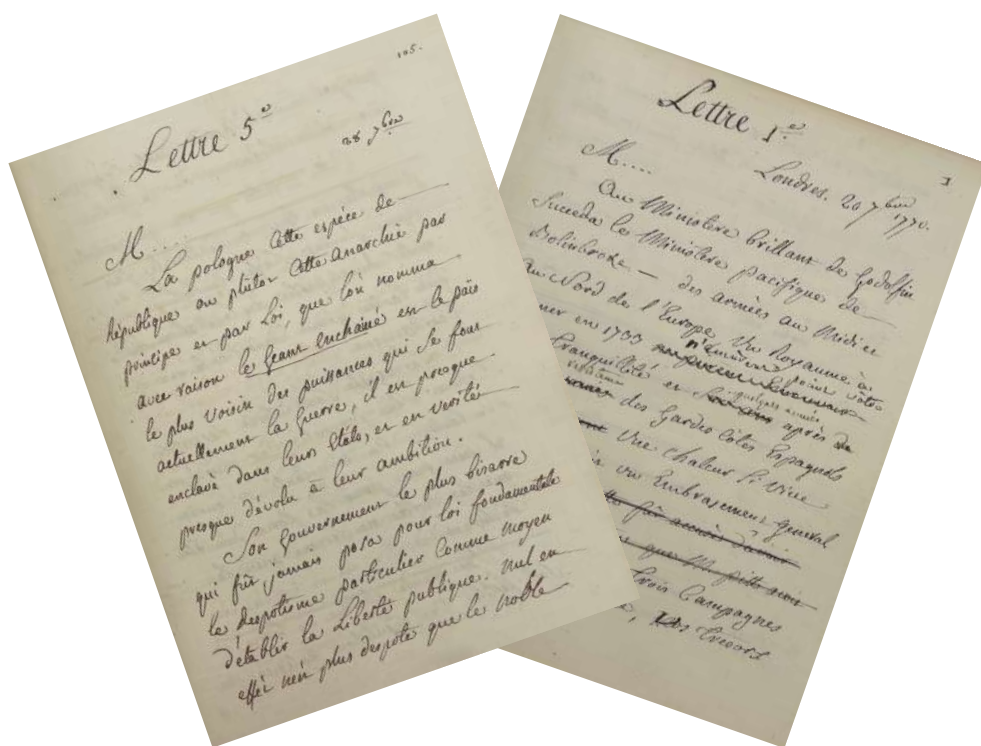 105.
Lettre 5.e
28 7bre
M.....
La pologne cette espéce de
République ou plutot cette anarchie par
principe et par Loi, que l'on nomma
avec raison le géant enchainé est le païs
le plus voisin des puissances qui se font
actuellement la Guerre, il est presque
enclavé dans leurs Etats, et en verité
presque dévolu à leur ambition.
Son gouvernement le plus bizarre
qui fût jamais posa pour loi fondamentale
le despotisme particulier comme moyen
d'établir la Liberté publique. nul en
effet n'est plus despote que le noble
Lettre 1.e
Londres. 20 7bre
1770.
M.....
Au Ministère brillant de Godolfin
Succeda le Ministère pacifique de
Bolinbroke — des armées au Midi et
au Nord de l'Europe Un Royaume à
en 1733 pour
tranquillité et quelques années après
des Gardes côtes Espagnols
Une chaleur si Vive
un Embrasement general
trois Campagnes